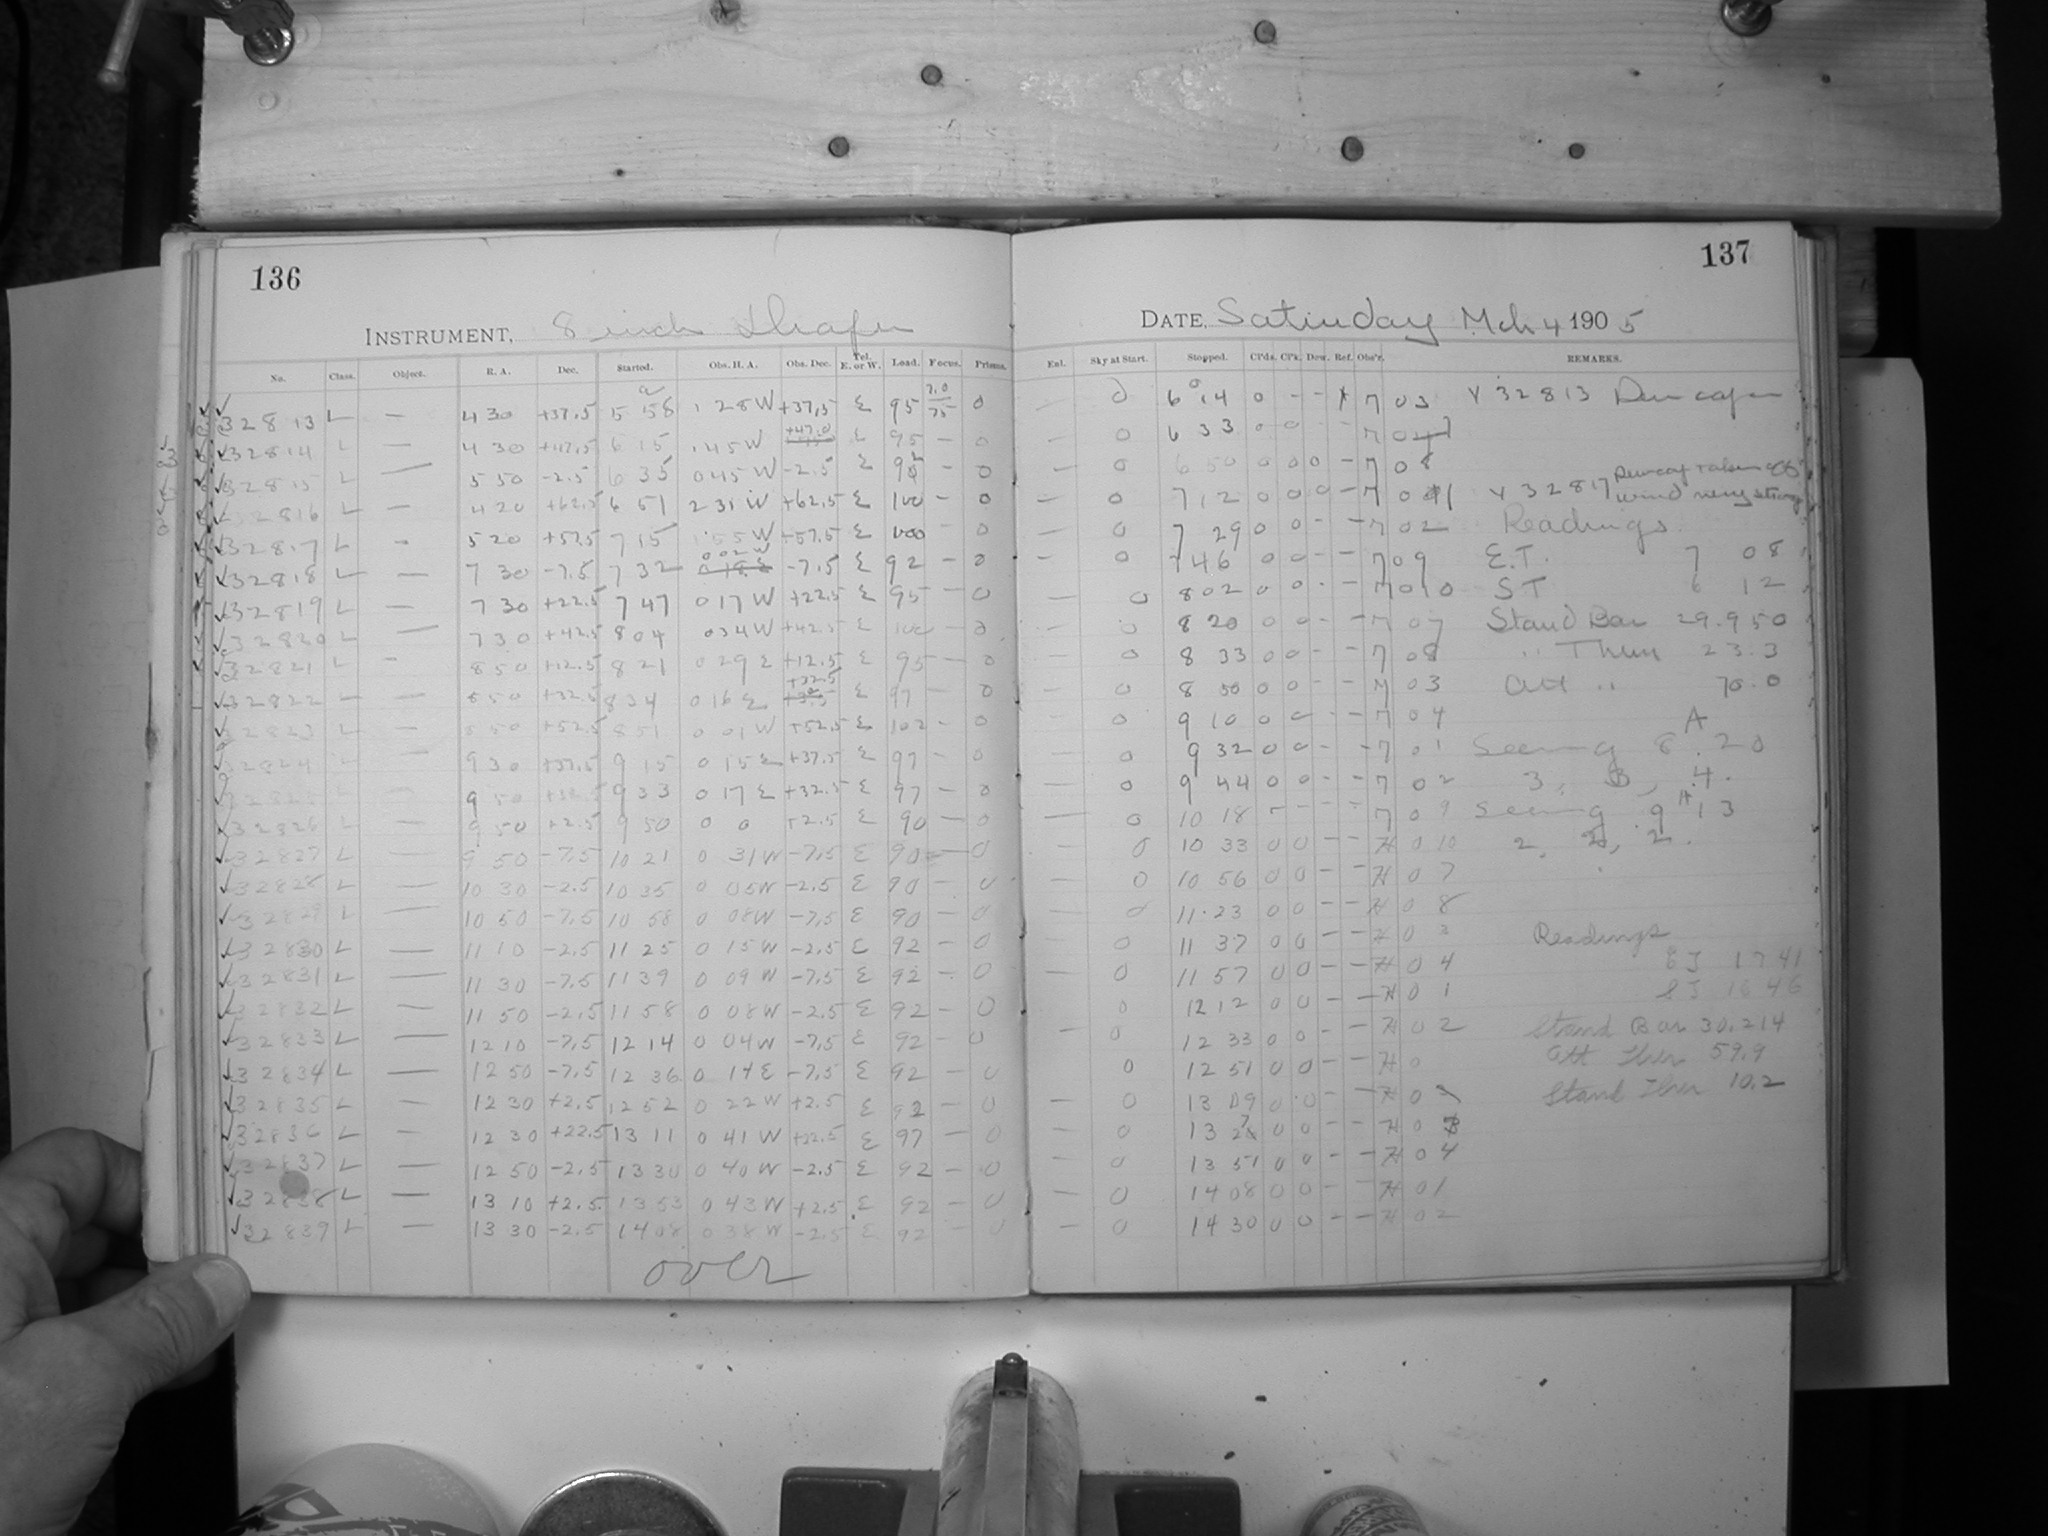 136
INSTRUMENT, 8 inch Draper
No. Class. Object. R. A. Dec. Started. Obs. H. A. Obs. Dec. Tel. E. or W. Load. Focus. Prisms.
32813 L — 4 30 +37.5 5 58 1 28 W +37.5 E 95 7.0/75 0
32814 L — 4 30 +47.5 6 15 1 45 W +47.0 E 95 — 0
32815 L — 5 50 -2.5 6 35 0 45 W -2.5 E 92 — 0
32816 L — 4 20 +62.5 6 51 2 31 W +62.5 E 100 — 0
32817 L - 5 20 +57.5 7 15 1 55 W +57.5 E 100 — 0
32818 L — 7 30 -7.5 7 32 0 02 W -7.5 E 92 — 0
32819 L — 7 30 +22.5 7 47 0 17 W +22.5 E 95 — 0
32820 L — 7 30 +42.5 8 04 0 34 W +42.5 E 100 — 0
32821 L - 8 50 +12.5 8 21 0 29 E +12.5 E 95 — 0
32822 L — 8 50 +32.5 8 34 0 16 E +32.5 E 97 — 0
32823 L — 8 50 +52.5 8 51 0 01 W +52.5 E 102 — 0
32824 L — 9 30 +37.5 9 15 0 15 E +37.5 E 97 — 0
32825 L — 9 50 +32.5 9 33 0 17 E +32.5 E 97 — 0
32826 L — 9 50 +2.5 9 50 0 0 +2.5 E 90 — 0
32827 L — 9 50 -7.5 10 21 0 31 W -7.5 E 90 — 0
32828 L — 10 30 -2.5 10 35 0 05 W -2.5 E 90 — 0
32829 L — 10 50 -7.5 10 58 0 08 W -7.5 E 90 — 0
32830 L — 11 10 -2.5 11 25 0 15 W -2.5 E 92 — 0
32831 L — 11 30 -7.5 11 39 0 09 W -7.5 E 92 — 0
32832 L — 11 50 -2.5 11 58 0 08 W -2.5 E 92 — 0
32833 L — 12 10 -7.5 12 14 0 04 W -7.5 E 92 — 0
32834 L — 12 50 -7.5 12 36 0 14 E -7.5 E 92 — 0
32835 L — 12 30 +2.5 12 52 0 22 W +2.5 E 92 — 0
32836 L — 12 30 +22.5 13 11 0 41 W +22.5 E 97 — 0
32837 L — 12 50 -2.5 13 30 0 40 W -2.5 E 92 — 0
32838 L — 13 10 +2.5 13 53 0 43 W +2.5 E 92 — 0
32839 L — 13 30 -2.5 14 08 0 38 W -2.5 E 92 — 0
over
137
DATE, Saturday Mch 4 190 5
Enl. Sky at Start. Stopped. Cl'ds. Cl'k. Dew. Ref. Obs'r. REMARKS.
— 0 6 14 0 - - 7 03 32813 Dewcap
— 0 6 33 0 0 - - 7
— 0 6 50 0 0 0 - 7 08
— 0 7 12 0 0 0 - 7 32817 Dewcap taken off
wind very strong
— 0 7 29 0 0 - - 7 02 Readings
— 0 7 46 0 0 - - 7 09 E.T. 7 08
— 0 8 02 0 0 - - 7 010 S T 6 12
— 0 8 20 0 0 - - 7 07 Stand Bar 29.950
— 0 8 33 0 0 - - 7 08 " Ther 23.3
— 0 8 50 0 0 - - 7 03 Att " 70.0
— 0 9 10 0 0 - - 7 04
— 0 9 32 0 0 - - 7 01 Seeing 8 A 20
— 0 9 44 0 0 - - 7 02 3, 3, 4.
— 0 10 18 - - - - 7 0 9 Seeing 9 A 13
— 0 10 33 0 0 - - H 0 10 2, 2, 2.
— 0 10 56 0 0 - - H 0 7
— 0 11 23 0 0 - - H 0 8
0 11 37 0 0 - - H 0 3 Readings
— 0 11 57 0 0 - - H 0 4 E T 17 41
0 12 12 0 0 - - H 0 1 S T 16 46
— 0 12 33 0 0 - - H 0 2 Stand Bar 30.214
0 12 51 0 0 - - H 0 Att Ther 59.9
— 0 13 09 0 0 - - H 0 Stand Ther 10.2
— 0 13 27 0 0 - - H 0 3
— 0 13 51 0 0 - - H 0 4
— 0 14 08 0 0 - - H 0 1
— 0 14 30 0 0 - - H 0 2